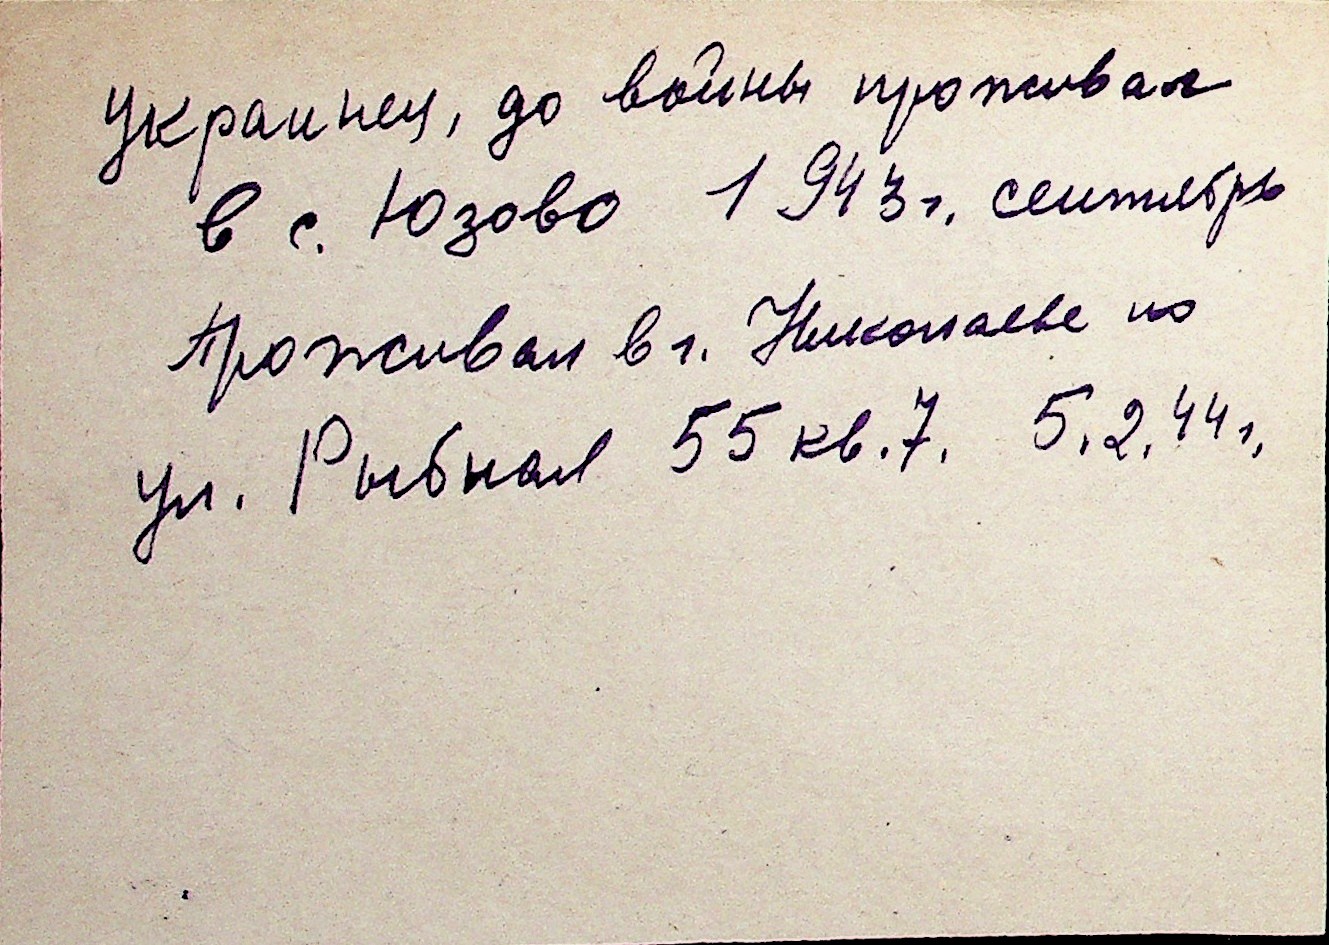 Украинец, до войны проживал
в с. Юзово 1943 г. сентябрь
Проживал в г. Николаеве по
ул. Рыбная 55 кв. 7. 5.2.44 г.